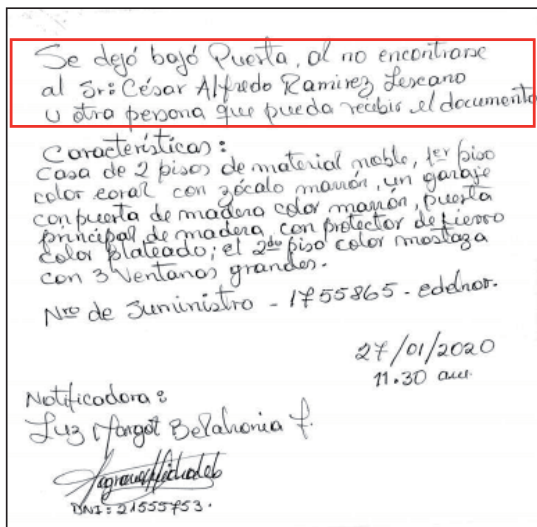 Se dejó bajó Puerta, al no encontrarse
al Sr: César Alfredo Ramirez Lescano
u otra persona que pueda recibir el documento
Características:
Casa de 2 pisos de material noble, 1er piso
color coral con zócalo marrón, un garaje
con puerta de madera color marrón, puerta
principal de madera, con protector de fierro
color plateado; el 2do piso color mostaza
con 3 Ventanas grandes.
Nro de Suministro - 1755865 - edelnor.
27/01/2020
11.30 am.
Notificadora:
Luz Margot
DNI: 21555753.